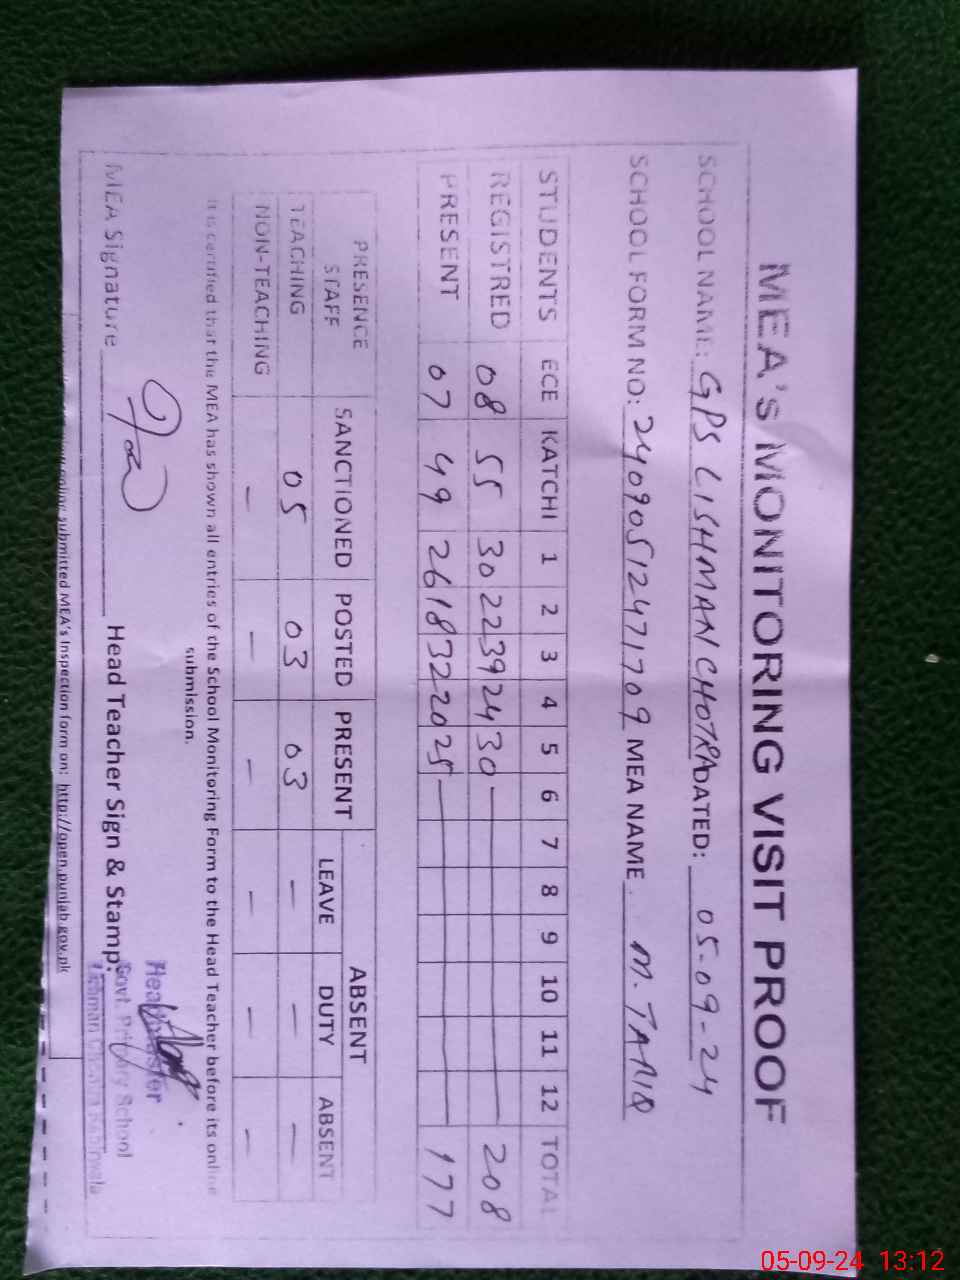 MEA's MONITORING VISIT PROOF
SCHOOL NAME: GPS LISHMAN CHOTRA DATED: 05-09-24
SCHOOL FORM NO: 24090512471709 MEA NAME M. TARIQ
STUDENTS ECE KATCHI 1 2 3 4 5 6 7 8 9 10 11 12 TOTAL
REGISTRED 08 55 30 22 39 24 30 — 208
PRESENT 07 49 26 18 32 20 25 — 177
PRESENCE ABSENT
STAFF SANCTIONED POSTED PRESENT LEAVE DUTY ABSENT
TEACHING 05 03 03 — — —
NON-TEACHING — — — — — —
It is certified that the MEA has shown all entries of the School Monitoring Form to the Head Teacher before its online
submission.
MEA Signature Head Teacher Sign & Stamp:
Headmaster
Govt. Primary School
submitted MEA's Inspection form on: http://open.punjab.gov.pk
05-09-24 13:12